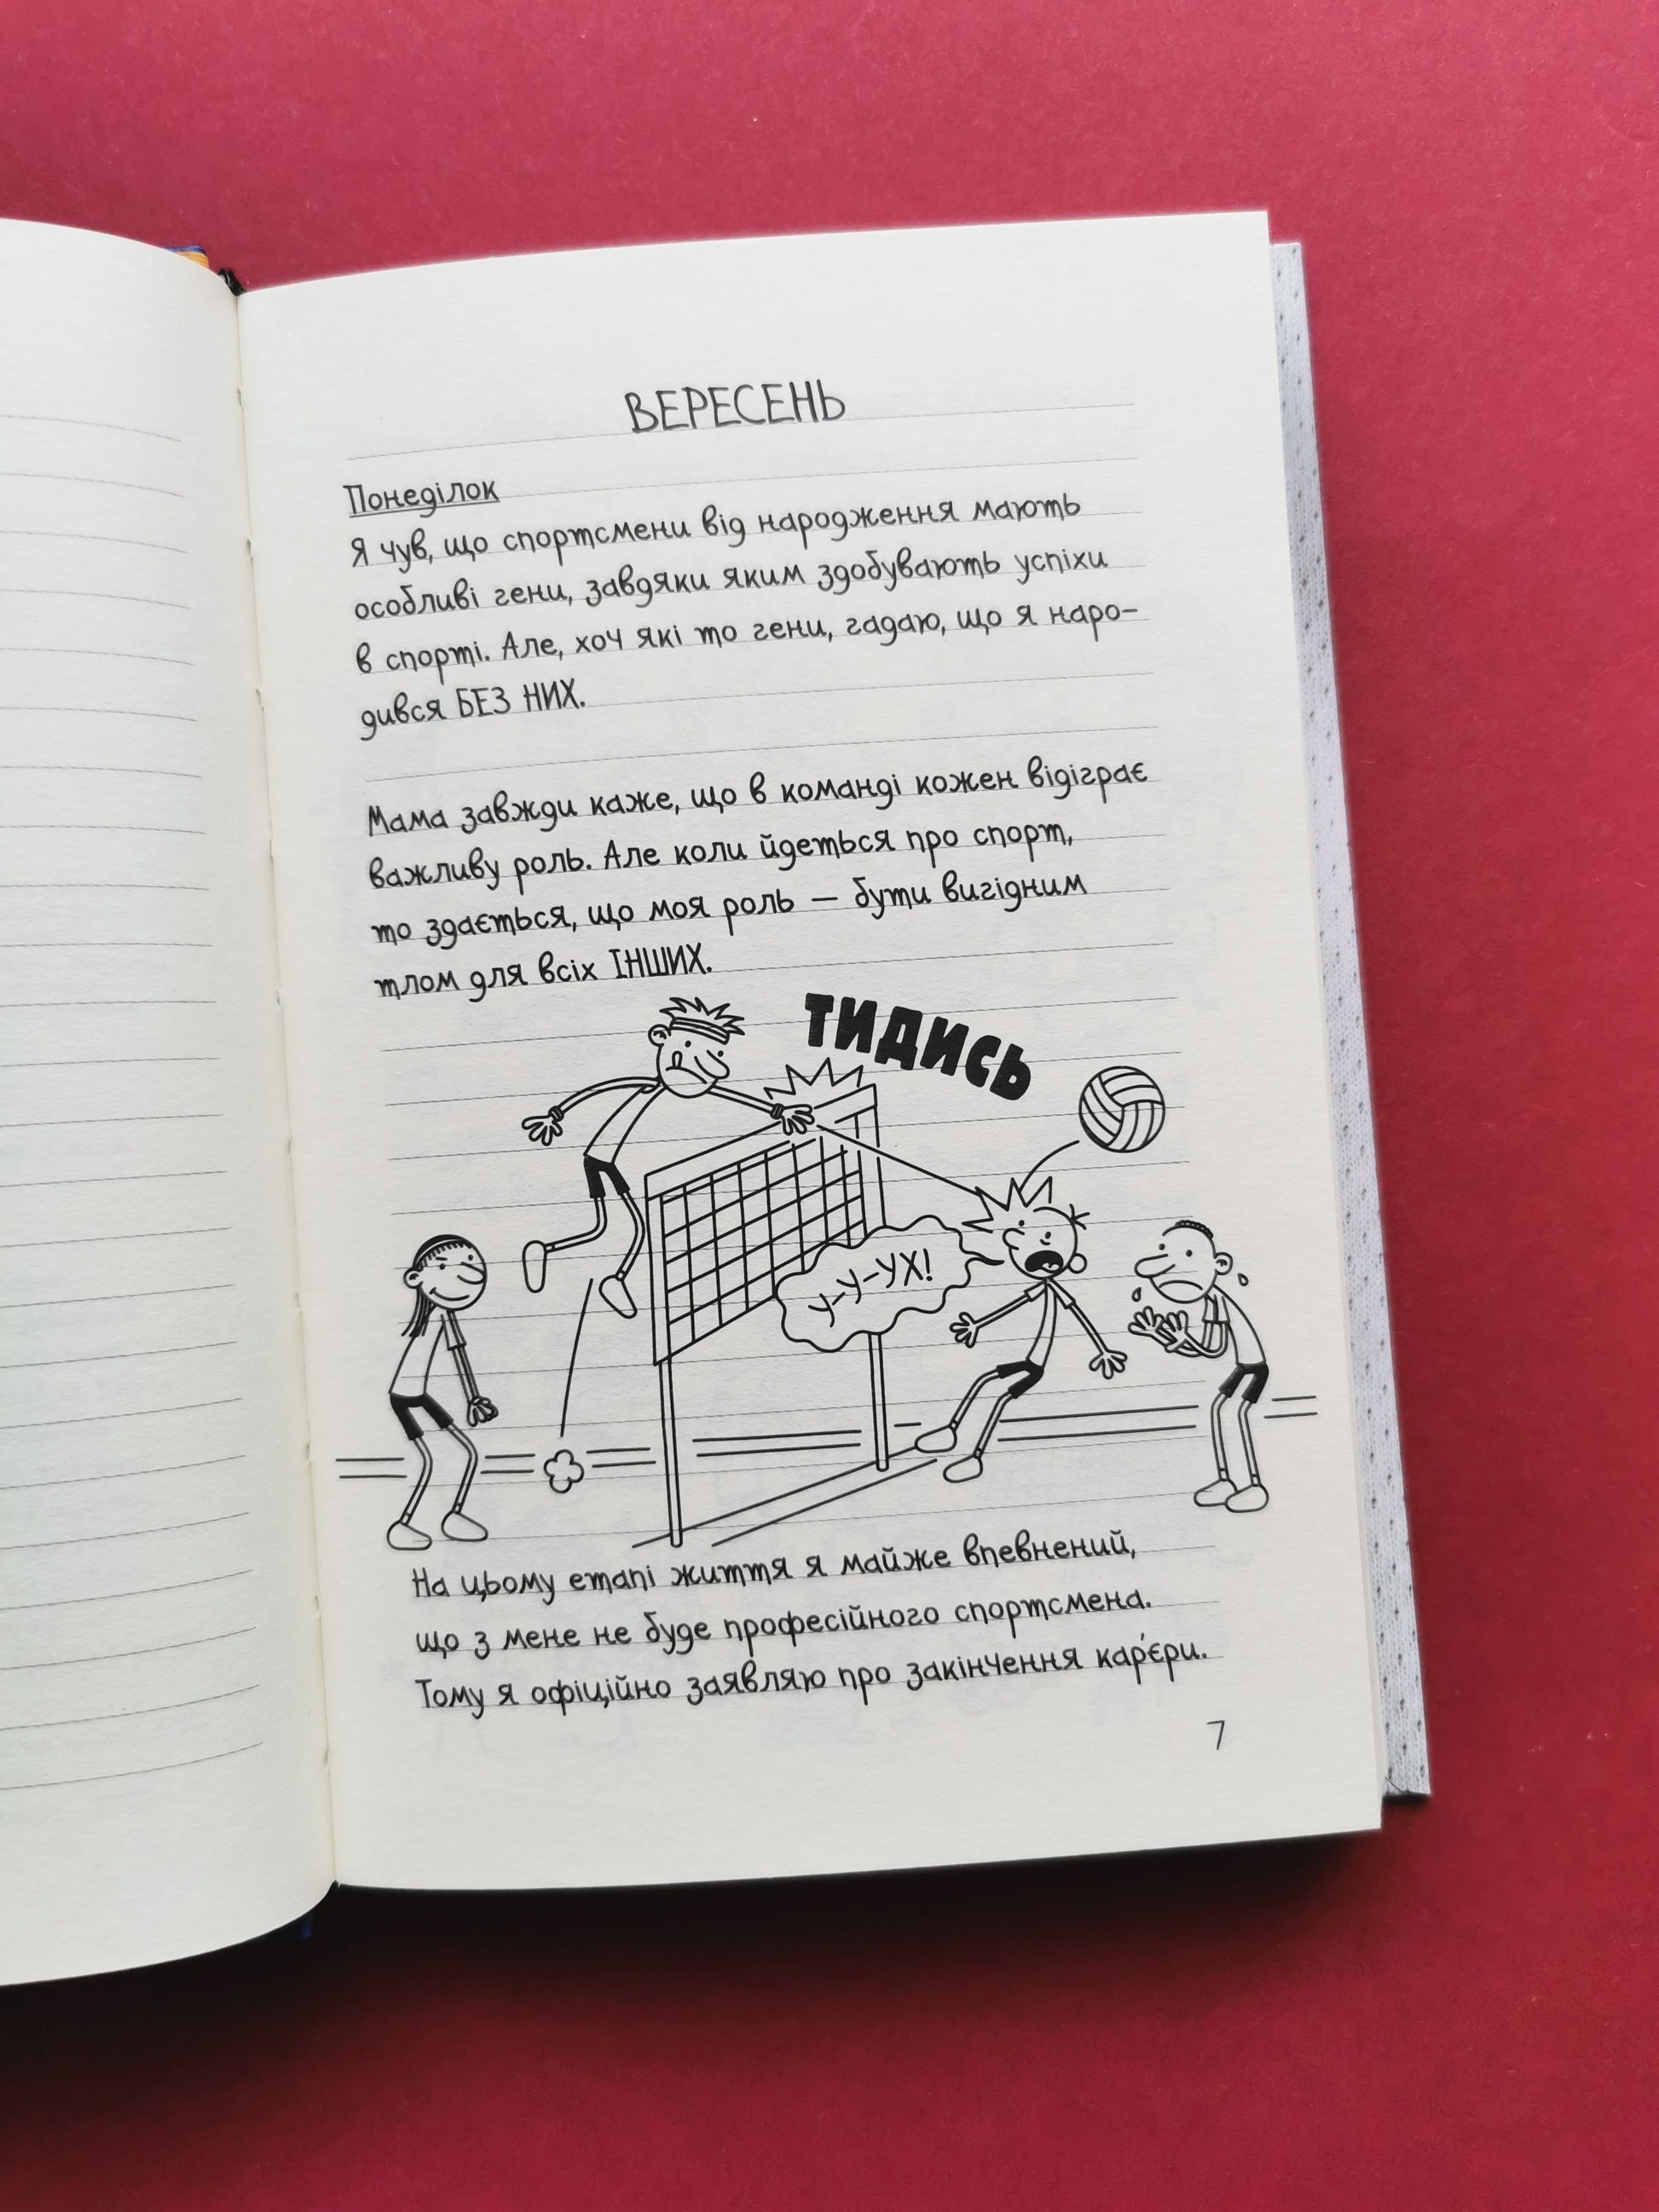 ВЕРЕСЕНЬ
Понеділок
Я чув, що спортсмени від народження мають
особливі гени, завдяки яким здобувають успіхи
в спорті. Але, хоч які то гени, гадаю, що я наро-
дився БЕЗ НИХ.
Мама завжди каже, що в команді кожен відіграє
важливу роль. Але коли йдеться про спорт,
то здається, що моя роль — бути вигідним
тлом для всіх ІНШИХ.
ТИДИСЬ
У-У-УХ!
На цьому етапі життя я майже впевнений,
що з мене не буде професійного спортсмена.
Тому я офіційно заявляю про закінчення кар'єри.
7